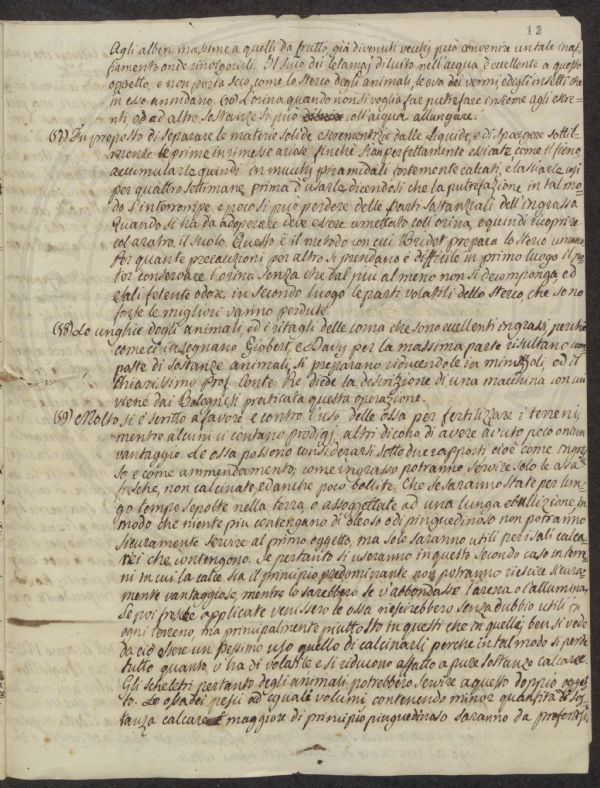 12
Agli alberi massime a quelli da frutto, già divenuti vecchj può convenire un tale inaf=
fiamento onde rinvigorirli. Il suco dei letamaj diluito nell'acqua è eccellente a questo
oggetto, e non porta seco, come lo sterco degli animali, le ova dei vermi e degli insetti che
in esso annidano. (56) L'orina quando non si voglia far putrefare insieme agli escre=
nti od ad altre sostanze si può coll'acqua allungare.
(57) In proposito di separare le materie solide escrementizie dalle liquide, e di spargere sottil=
mente le prime in rimesse ariose, finchè sian perfettamente essicate, come il fieno,
accumularle quindi in mucchj piramidali fortemente calcati, e lasciarle così
per quattro settimane, prima d'usarle dicendosi che la putrefazione in tal mo=
do s'interrompe, e poco si può perdere delle parti sostanziali dell'ingrasso
Quando si ha da adoperare deve essere umettato coll'orina, e quindi ricoprire
col aratro il suolo. Questo è il metodo con cui Bridet prepara lo sterco umano
Per quante precauzioni per altro si prendano è difficile in primo luogo il po
ter conservare l'orina senza che dal più al meno non si decomponga, ed
esali fetente odore, in secondo luogo le parti volatili dello sterco, che sono
forse le migliori vanno perdute.
(58) Le unghie degli animali, ed i ritagli delle corna che sono eccellenti ingrassi, perchè
come ci insegnano Giobert e Davy per la massima parte risultano com
poste di sostanze animali, si preparano riducendole in minuzzoli, ed il
Chiarissimo Prof. Conte Re diede la descrizione di una macchina con cui
viene dai Bolognesi praticata questa operazione.
(59) Molto si è scritto a favore e contro l'uso delle ossa per fertilizzare i terreni;
mentre alcuni ci contano prodigj, altri dicono di avere avuto poco o niun
vantaggio. Le ossa possono considerarsi sotto due rapporti, cioè come ingras
so, e come ammendamento; come ingrasso potranno servire solo le ossa
fresche, non calcinate, ed anche poco bollite. Che se saranno state per lun
go tempo sepolte nella terra, o assoggettate ad una lunga ebullizione, in
modo che niente più contengano di oleoso o di pinguedinoso non potranno
sicuramente servire al primo oggetto, ma solo saranno utili per i sali calca
rei che contengono. Se pertanto si useranno in questo secondo caso in terre
ni in cui la calce sia il principio predominante non potranno riescire sicura=
mente vantaggiose, mentre lo sarebbero se v'abbondasse l'arena o l'allumina.
Se poi fresche applicate venissero le ossa riescirebbero senza dubbio utili in
ogni terreno, ma principalmente piuttosto in questi che in quelle; ben si vede
da ciò essere un pessimo uso quello di calcinarli perchè in tal modo si perde
tutto quanto v'ha di volatile e si riducono affatto a pure sostanze calcaree.
Gli scheletri pertanto degli animali potrebbero servire a questo doppio ogget
to. Le ossa dei pesci ad eguale volumi contenendo minor quantità di sos
tanza calcare e maggiore di principio pinguedinoso saranno da preferirsi,